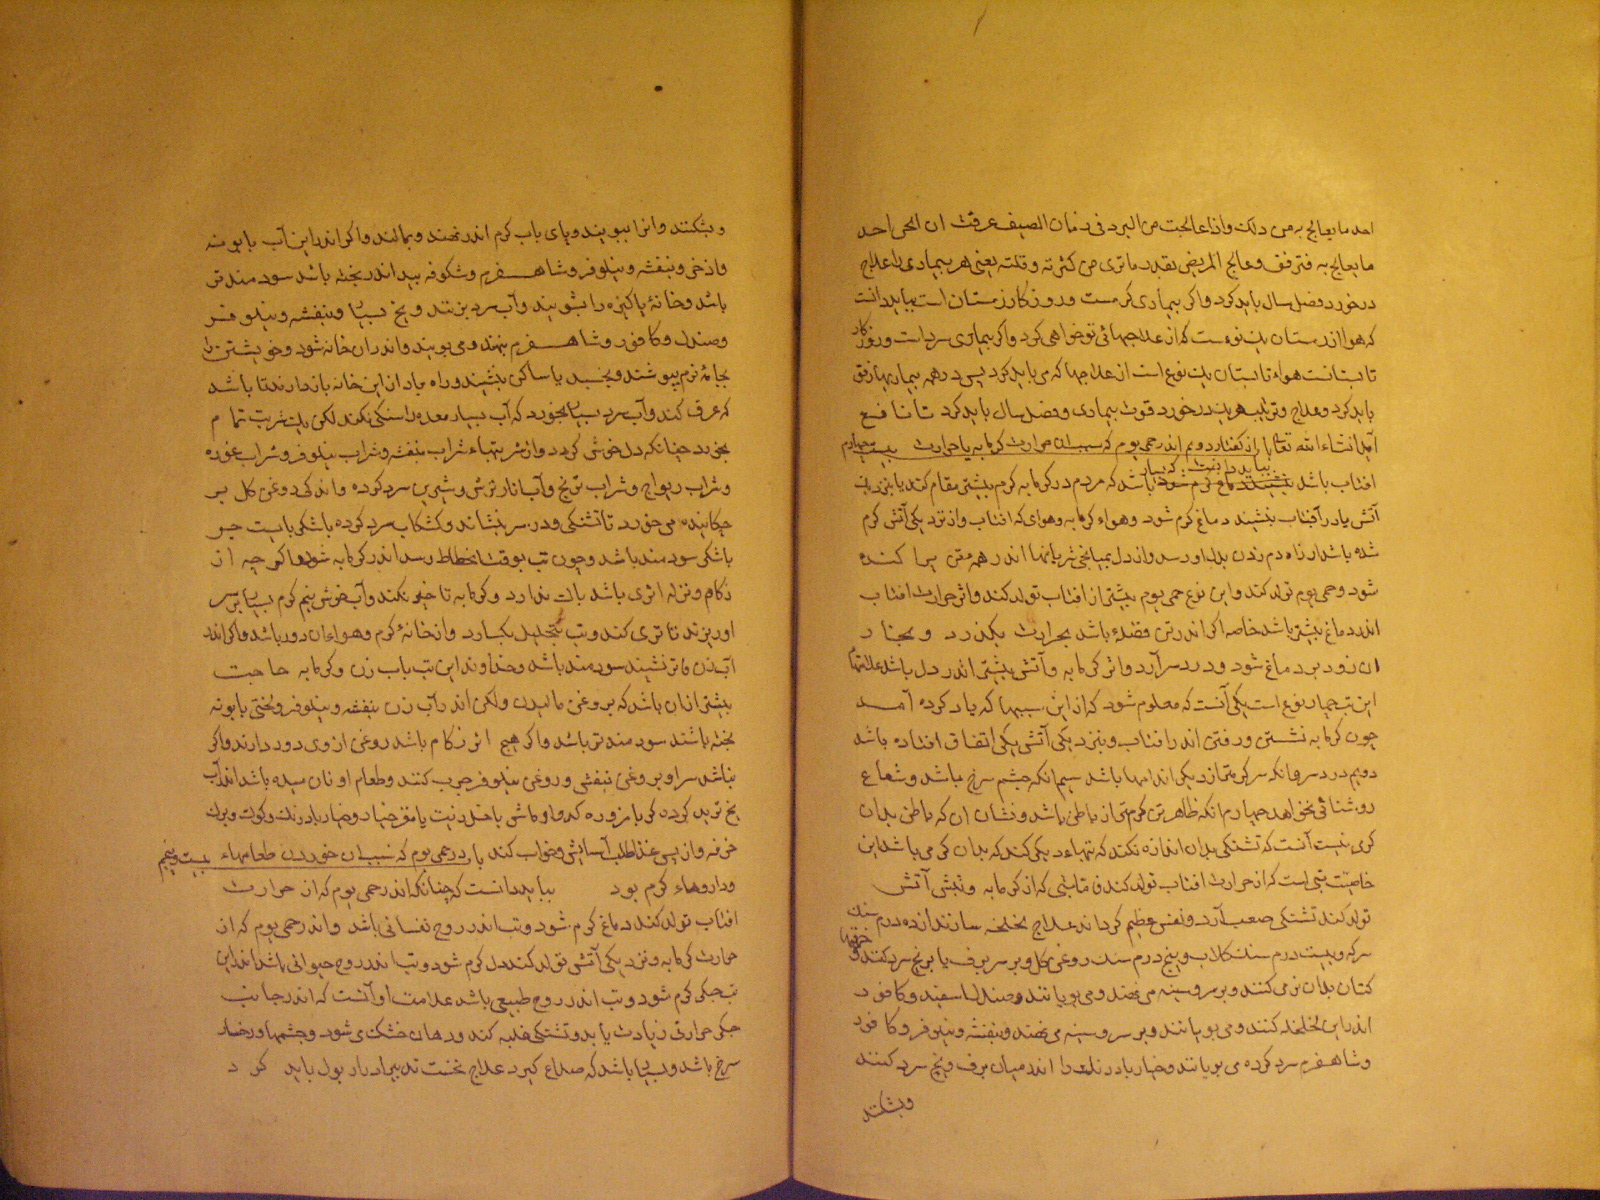 احد ما يعالج به من ذلك واذا عالجت من البرد فى زمان الصيف عرفت ان الحمى احد
ما يعالج به فترفق وعالج المريض بقدر ما ترى من كثرته وقلته يعنى هر بيمارى را علاج
درخورد فصل سال بايد كرد واكر بيمارى كرمست وروزكار زمستان است ببايد دانست
كه هوا اندر زمستان يك نوعست كه از علاجهائى تو خواهى كرد واكر بيمارى سرد است وروزكار
تابستانست هواء تابستان يك نوع است از علاجها كه مى بايد كرد پس در همه بيماريها رفق
بايد كرد وعلاج وتدبير درخورد قوت بيمارى وفصل سال بايد كرد تا نافع
آيد انشاء الله تعالى باب از كفتار دويم اندر حمى يوم كه سبب ان حرارت كرمابه يا حرارت بيست وچهارم
افتاب باشد ببايد دانست كه بسيار باشد كه مردم در كرمابه كرم بيشتر مقام كند يا نزديك
آتش يا در آفتاب بنشيند دماغ كرم شود وهواء كرمابه وهواى كه افتاب واز نزديكى آتش كرم
شده باشد از راه دم زدن بدل او رسد واز دل بميانجى شريانها اندر همه تن پراكنده
شود وحمى يوم تولد كند واين نوع حمى يوم بيشتر از افتاب تولد كند واثر حرارت افتاب
اندر دماغ بيشتر باشد خاصه اكر اندر تن فضله باشد بحرارت بكدازد وبخار
ان زود بر دماغ شود ودرد سر آرد واثر كرمابه وآتش بيشتر اندر دل باشد علامتها
اين تب چهار نوع است يكى آنست كه معلوم شود كه از اين سببها كه ياد كرده آمد
چون كرمابه نشستن ورفتن اندر افتاب وبنزديكى آتش يكى اتفاق افتاده باشد
دويم درد سر وانكه سر كرمتر از ديكر اندامها باشد سيم انكه چشم سرخ باشد وشعاع
روشنائى نخواهد چهارم انكه ظاهر تن كرمتر از باطن باشد ونشان ان كه باطن بدان
كرمى نيست آنست كه تشنكى بدان اندازه نكند كه تبهاء ديكر كند كه بدان كرمى باشد اين
خاصيت تبى است كه از حرارت افتاب تولد كند فاما تبى كه از كرمابه وتبش آتش
تولد كند تشنكى صعب آرد ونفس عظيم كرداند علاج لخلخه سازند از ده درم سنك
سركه وبيست درم سنك كلاب وپنج درم سنك روغن كل وبر سر برف يا بر يخ سرد كنند وخرقهاء
كتان بدان تر مى كنند وبر سر وسينه مى نهند ومى بويانند وصندل اسفيد وكافور
اندر اين لخلخه كنند ومى بويانند وبر سر وسينه مى نهند وبنفشه ونيلوفر وكافور
وشاهسفرم سرد كرده مى بويانند وخيار بادرنك را اندر ميان برف ويخ سرد كنند
وبشكنند
وبشكنند وانرا ببويند وپاى باب كرم اندر نهند وبمالند واكر اندر اين آب بابونه
واذخر وبنفشه ونيلوفر وشاهسفرم وشكوفه بيد اندر پخته باشد سودمندتر
باشد وخانهٔ پاكيزه را بشويند وآب سرد بزنند ويخ بسيار وبنفشه ونيلوفر
وصندل وكافور وشاهسفرم بنهند ومى بويند واندران خانه شود وخويشتن را
بجامهٔ نرم بپوشند وبخسبد يا ساكن بنشيند وراه باد از اين خانه باز دارند تا باشد
كه عرق كند وآب سرد بسيار نخورد كه آب بسيار معده را سنكى نكند لكن يك شربت تمام
بخورد چنانكه دل خوش كردد واز شربتهاء شراب بنفشه وشراب نيلوفر وشراب غوره
وشراب ريواج وشراب ترنج وآب انار ترش وشيرين سرد كرده واندكى روغن كل بر
چكانيده مى خورد تا تشنكى ودرد سر بنشاند وكشكاب سرد كرده باشكر يا پست جو
باشكر سودمند باشد وچون تب بوقت انحطاط رسد اندر كرمابه شود واكرچه از
زكام ونزله اثرى باشد باك ندارد وكرمابه تا خوى نكند وآب خوش نيم كرم بسيار بر سر
او ريزند تا ترى كند وتب بتحليل بكسارد واز خانهٔ كرم وهواء ان دور باشد واكر اندر
آب زن فاتر نشيند سودمند باشد وخداوند اين تب باب زن وكرمابه حاجت
بيشتر ازان باشد كه بروغن ماليدن ولكن اندر آب زن بنفشه ونيلوفر ولختى بابونه
پخته باشند سودمندتر باشد واكر هيچ اثر زكام باشد روغن از وى دور دارند واكر
نباشد سر او بروغن بنفش وروغن نيلوفر چرب كنند وطعام او نان ميده باشد اندر آب
يخ تريد كرده كرد يا مزوره كدو او ماش يا خل زيت يا مغز خيار وخيار بادرنك وكوك وبرك
خرفه واز پس غذا طلب آسايش وخواب كند باب در حمى يوم كه سبب ان خوردن طعامهاء بيست وپنجم
وداروهاء كرم بود ببايد دانست كه چنانكه اندر حمى يوم كه از حرارت
افتاب تولد كند دماغ كرم شود وتب اندر روح نفسانى باشد واندر حمى يوم كه از
حرارت كرمابه ونزديكى آتش تولد كند دل كرم شود وتب اندر روح حيوانى باشد اندر اين
تب جكر كرم شود وتب اندر روح طبيعى باشد علامت او آنست كه اندر جانب
جكر حرارتى زيادت يابد وتشنكى غلبه كند ودهان خشك مى شود وچشمها ورخسار
سرخ باشد وبسيار باشد كه صداع كيرد علاج نخست تدبير ادرار بول بايد كرد